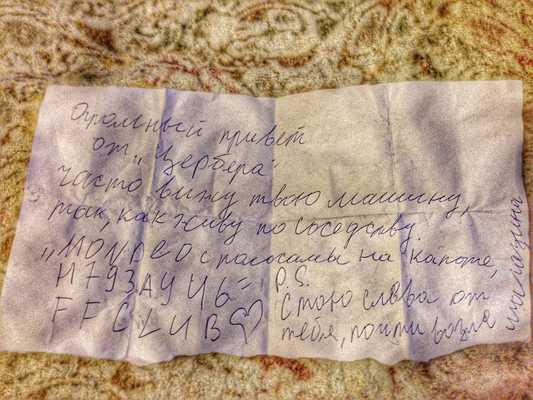 Огромный привет
от „Цербера“
часто вижу твою машину,
так, как живу по соседству.
„MONDEO с полосами на капоте,
Н793АУ46“
FFCLUB♡
P.S.
Стою слева от
тебя, почти возле
магазина